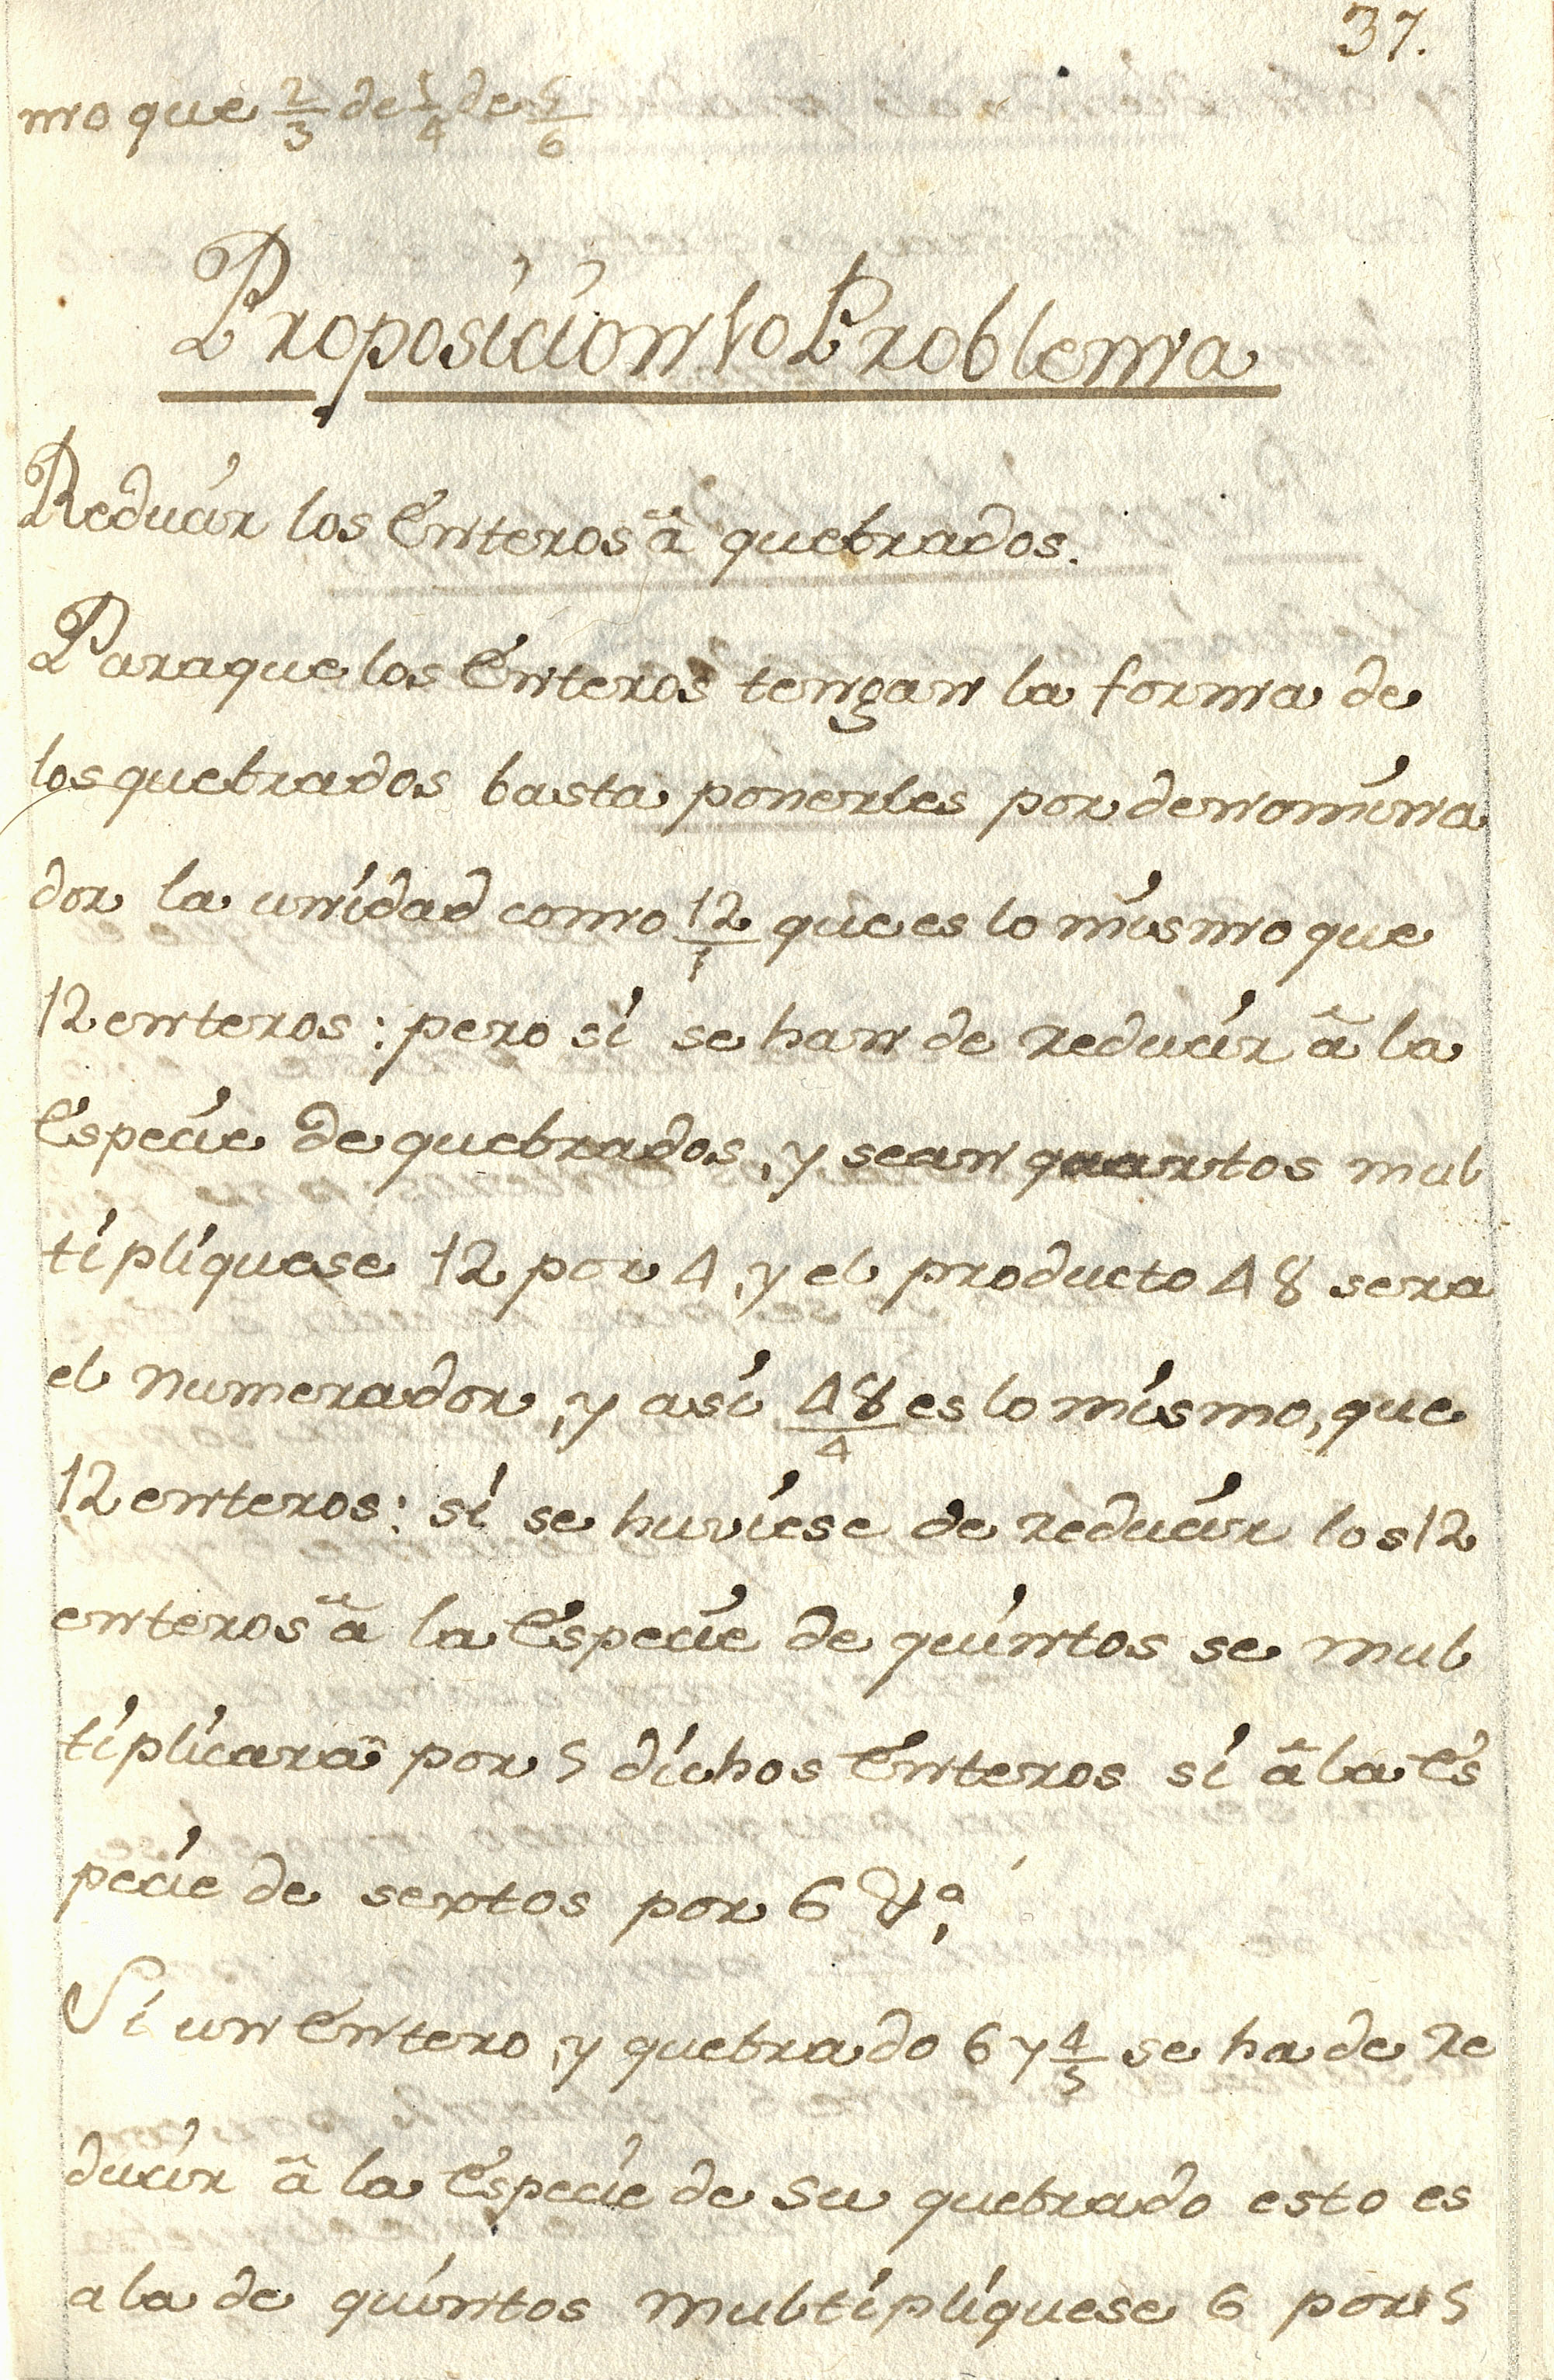 37.
mo que 2/3 de 1/4 de 5/6
Proposicion 10 Problema
Reducir los Enteros â quebrados.
Paraque los Enteros tengan la forma de
los quebrados basta ponerles por denomina
dor la unidad como 12/1 que es lo mismo que
12 enteros: pero si se han de reducir â la
Especie de quebrados, y sean quartos mul
tipliquese 12 por 4, y el producto 48 sera
el numerador, y asi 48/4 es lo mismo, que
12 enteros: si se huviese de reducir los 12
enteros â la Especie de quintos se mul
tiplicarâ por 5 dichos Enteros si â la Es
pecie de sextos por 6 &ª,
Si un Entero, y quebrado 6 y 4/5 se ha de re
ducir â la Especie de su quebrado esto es
a la de quintos multipliquese 6 por 5